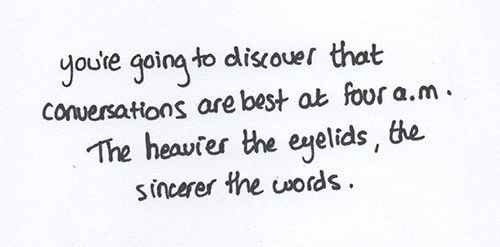 you're going to discover that
conversations are best at four a.m.
The heavier the eyelids, the
sincerer the words.